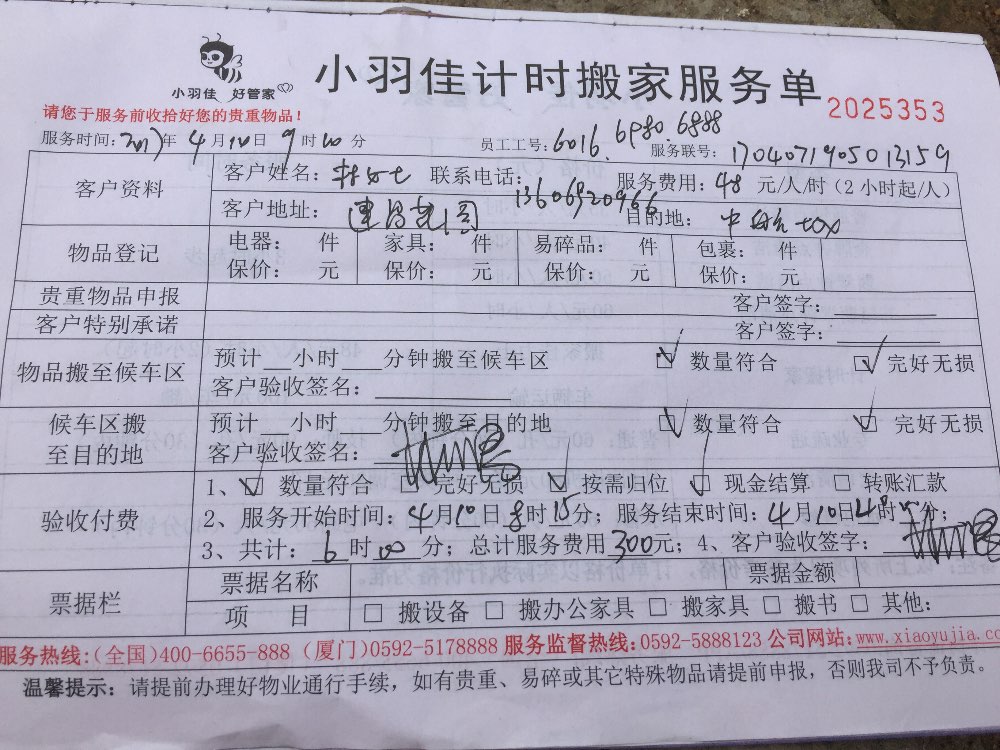 小羽佳 好管家
小羽佳计时搬家服务单
2025353
请您于服务前收拾好您的贵重物品！
服务时间：2017年 4月10日 9时00分 员工工号：6016. 6980. 6888 服务联号：1704071905013159
客户资料 客户姓名： 联系电话：13606920966 服务费用：48 元/人/时（2小时起/人）
客户地址： 目的地：
物品登记 电器： 件 家具： 件 易碎品： 件 包裹： 件
保价： 元 保价： 元 保价： 元 保价： 元
贵重物品申报 客户签字：
客户特别承诺 客户签字：
物品搬至候车区 预计__小时__分钟搬至候车区 ☑ 数量符合 ☑ 完好无损
客户验收签名：
候车区搬至目的地 预计__小时__分钟搬至目的地 ☑ 数量符合 ☑ 完好无损
客户验收签名：
验收付费 1、☑ 数量符合 □ 完好无损 ☑ 按需归位 ☑ 现金结算 □ 转账汇款
2、服务开始时间：4月10日8时15分；服务结束时间：4月10日 时 分；
3、共计：6时00分；总计服务费用300元；4、客户验收签字：
票据栏 票据名称 票据金额
项 目 □ 搬设备 □ 搬办公家具 □ 搬家具 □ 搬书 □ 其他：
服务热线：（全国）400-6655-888（厦门）0592-5178888 服务监督热线：0592-5888123 公司网站：www.xiaoyujia.co
温馨提示：请提前办理好物业通行手续，如有贵重、易碎或其它特殊物品请提前申报，否则我司不予负责。